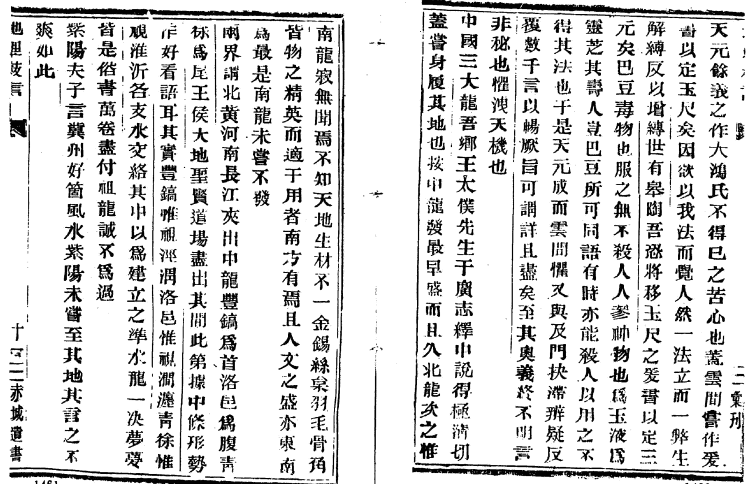 天元餘義之作大鴻氏不得已之苦心也蓋雲間嘗作爰
書以定玉尺矣因欲以我法而覺人然一法立而一弊生
解縛反以增縛世有皋陶吾恐將移玉尺之爰書以定三
元矣巴豆毒物也服之無不殺人人參神物也爲玉液爲
靈芝其壽人豈巴豆所可同語有時亦能殺人以用之不
得其法也于是天元成而雲間懼又與及門抉滯辨疑反
覆數千言以暢厥旨可謂詳且盡矣至其奧義終不明言
非秘也懼洩天機也
中國三大龍吾鄉王太僕先生于廣志繹中說得極清切
蓋嘗身履其地也按中龍發最早盛而且久北龍次之惟
南龍寂無聞焉不知天地生材不一金錫絲枲羽毛骨角
皆物之精英而適于用者南方有焉且人文之盛亦東南
爲最是南龍未嘗不發
兩界謂北黃河南長江夾出中龍豐鎬爲首洛邑爲腹青
徐爲尾王侯大地聖賢道場盡出其間此第據中條形勢
作好看語耳其實豐鎬惟視涇渭洛邑惟視澗瀍青徐惟
視淮沂各支水交絡其中以爲建立之準水龍一決夢夢
皆是俗書萬卷盡付祖龍誠不爲過
紫陽夫子言冀州好箇風水紫陽未嘗至其地其言之不
爽如此
地理枝言
十
二
赤城遺書
二
彙刊
1461